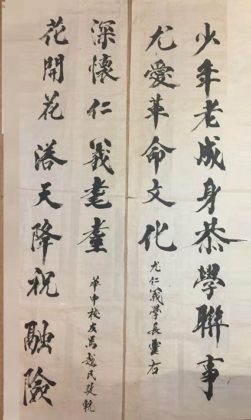 少年老成身恭學聯事
尤愛革命文化
尤仁義學長靈右
深懷仁義耄耋
華中校友馬超民敬輓
花開花落天降祝融險